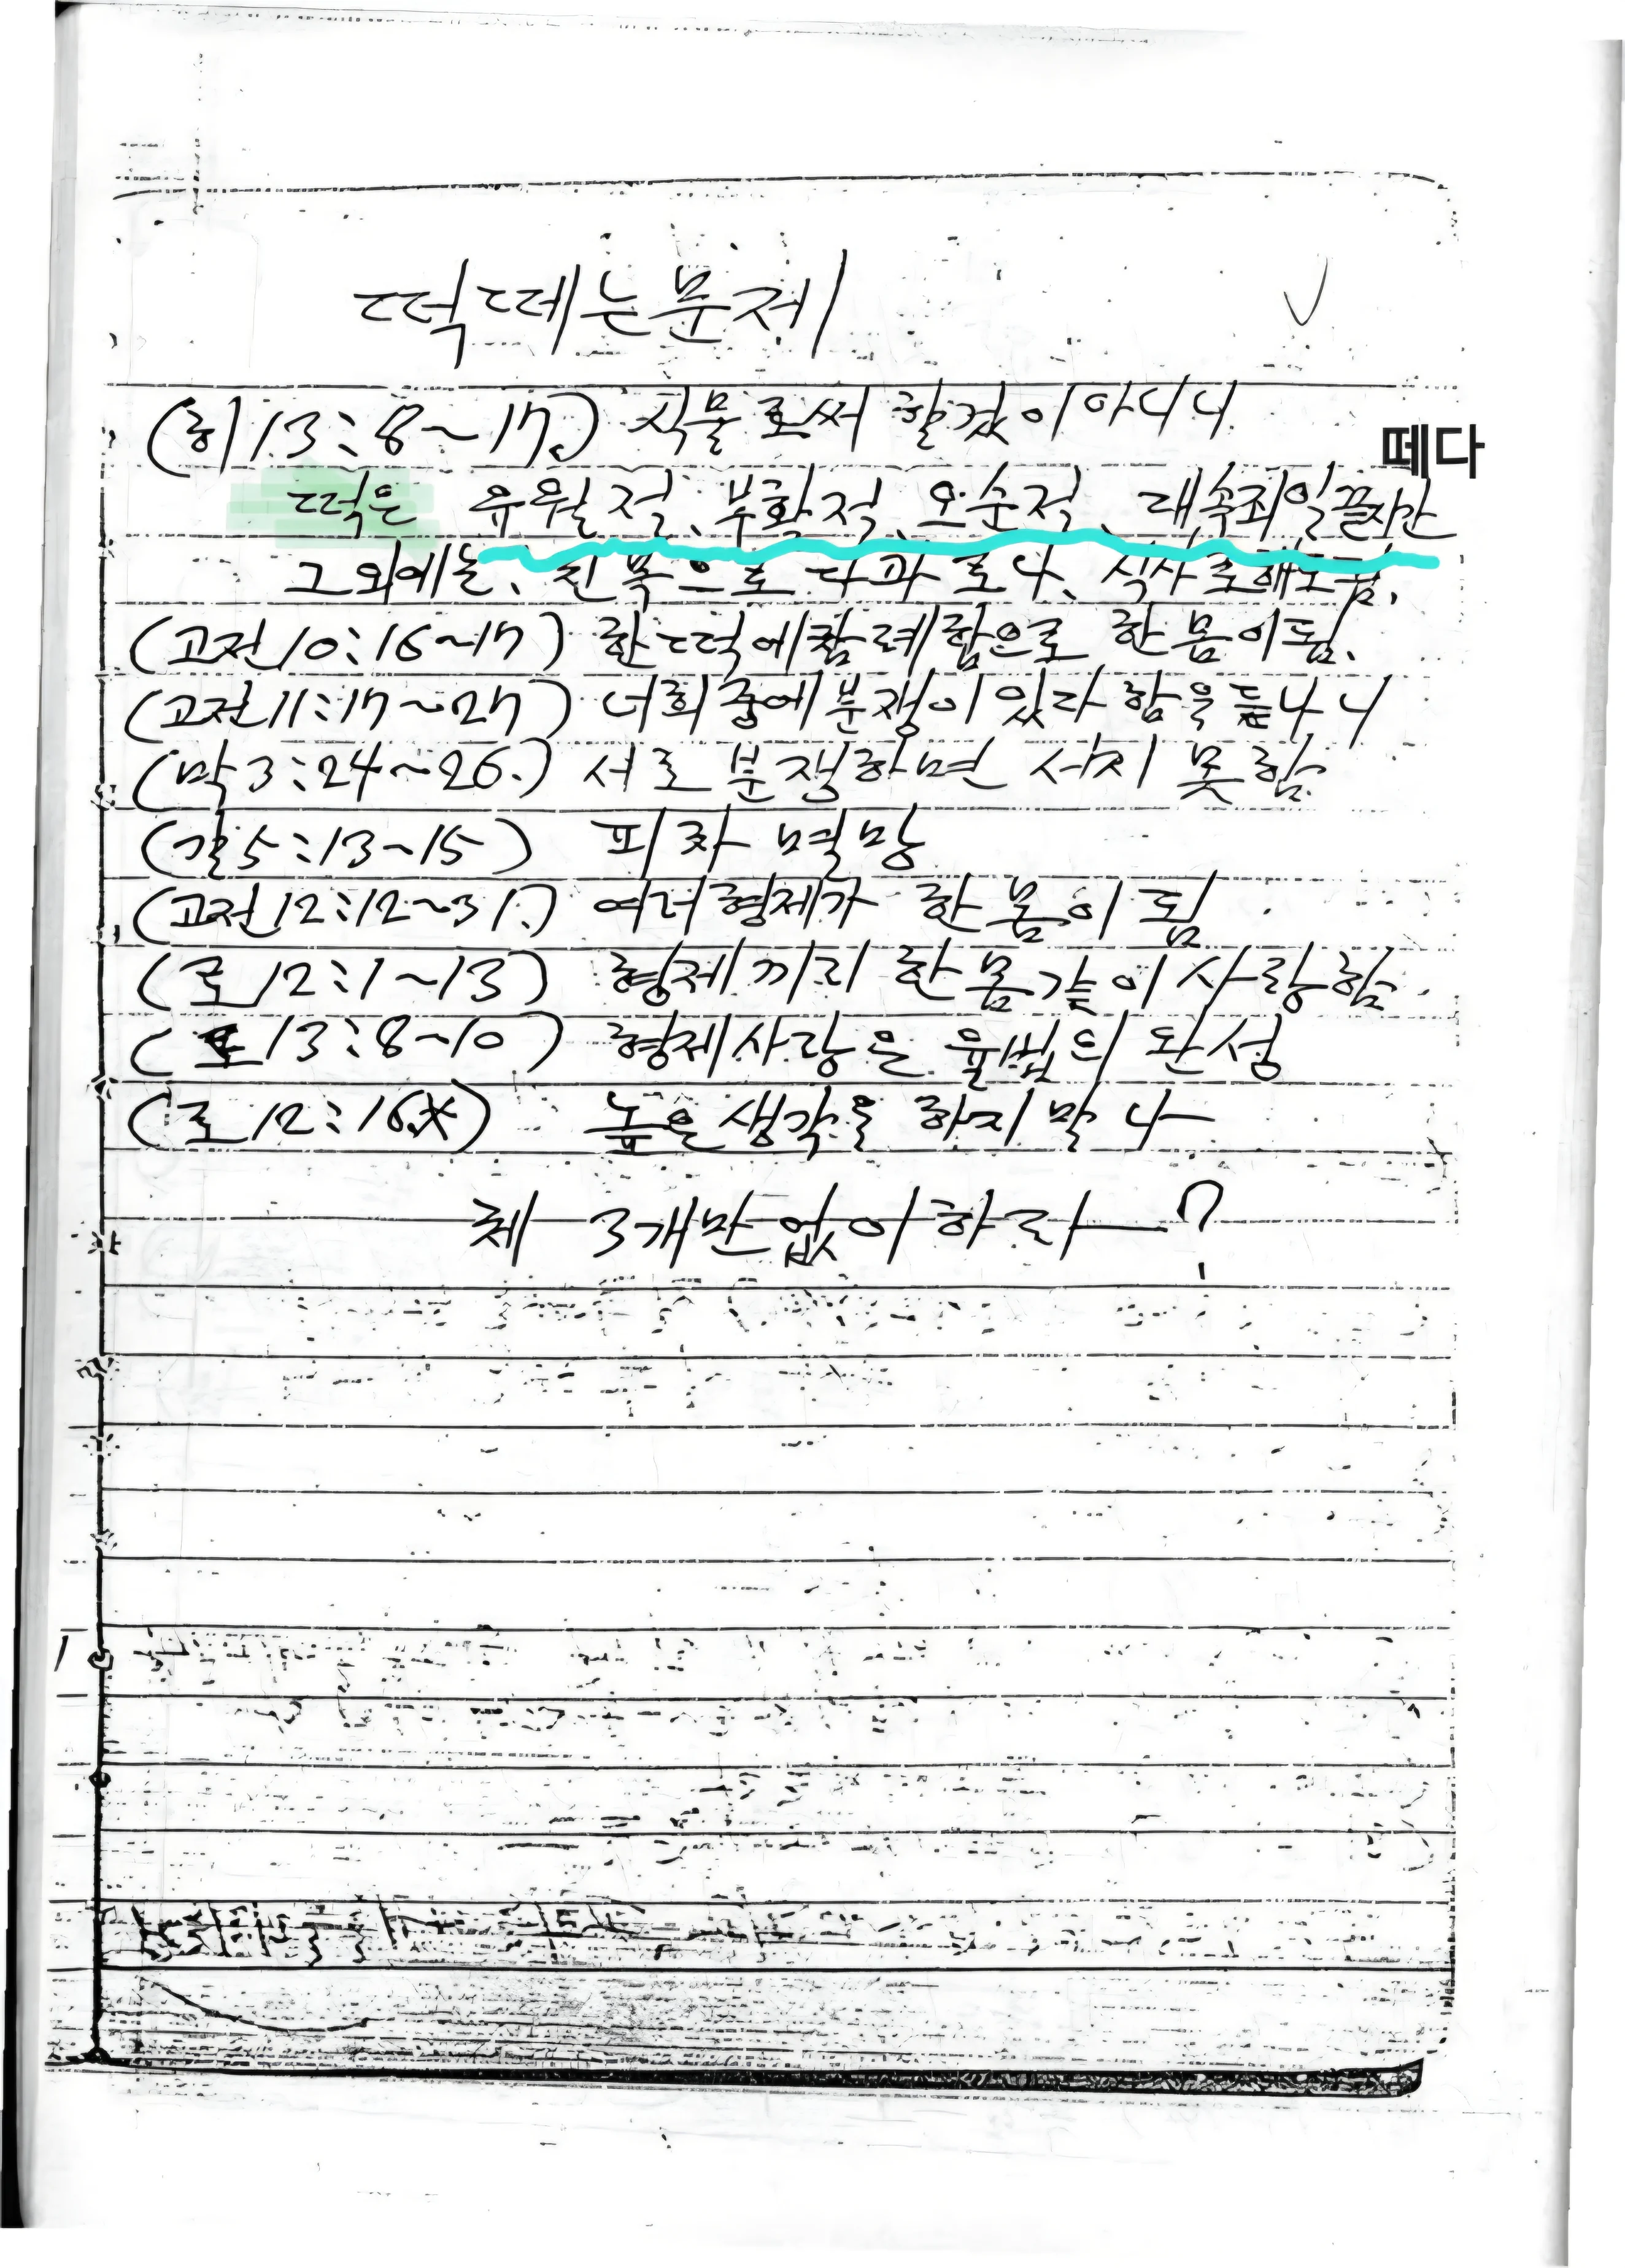 떡떼는문제
(히 13:8~17.) 식물로써 할것이아니니
떼다
떡은 유월절、부활절、오순절、대속죄일끝시간
그외에는、친목으로 다과로나、식사로해도됨.
(고전 10:16~17) 한떡에참례함으로 한몸이됨.
(고전 11:17~27) 너희중에분쟁이있다함을듣나니
(막 3:24~26.) 서로 분쟁하면 서지 못함
(갈 5:13~15) 피차 멸망
(고전 12:12~31.) 여러형제가 한몸이됨
(로 12:1~13) 형제끼리 한몸같이사랑함.
(로 13:8~10) 형제사랑은 율법의 완성
(로 12:16.*) 높은생각을 하지말나
체 3개만없이하라 ?